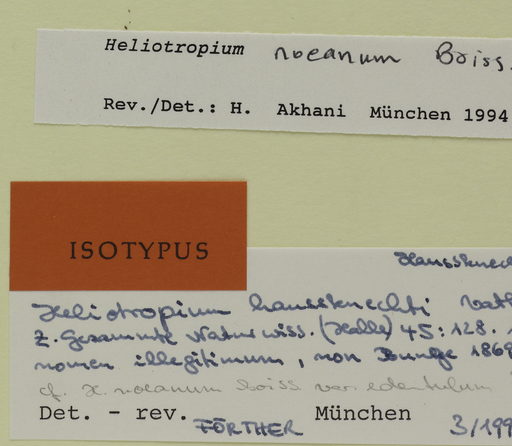 Heliotropium noeanum Boiss.
Rev./Det.: H. Akhani München 1994
ISOTYPUS
Haussknec
Heliotropium haussknechti Vat
Z. Gesammte Naturwiss. (Halle) 45: 128.
nomen illegitimum, non Bunge 1869
cf. H. noeanum boiss var. edentulum
Det. - rev. FÖRTHER München 3/199